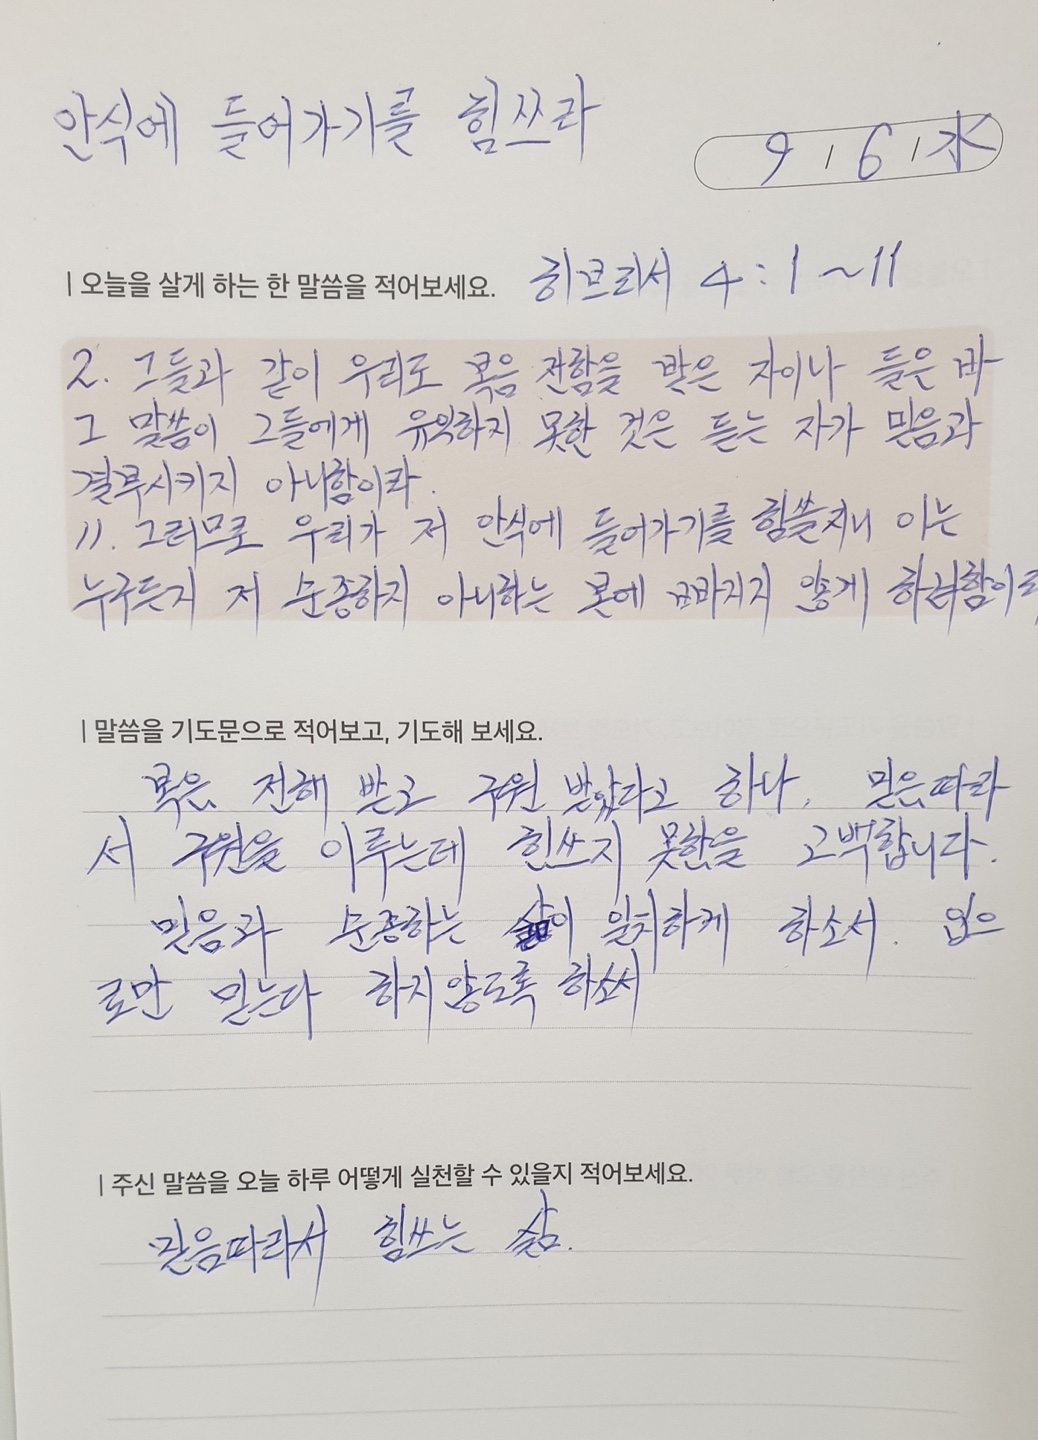 안식에 들어가기를 힘쓰라
9 / 6 / 水
| 오늘을 살게 하는 한 말씀을 적어보세요. 히브리서 4:1~11
2. 그들과 같이 우리도 복음 전함을 받은 자이나 들은 바
그 말씀이 그들에게 유익하지 못한 것은 듣는 자가 믿음과
결부시키지 아니함이라.
11. 그러므로 우리가 저 안식에 들어가기를 힘쓸지니 이는
누구든지 저 순종하지 아니하는 본에 빠지지 않게 하려함이라
| 말씀을 기도문으로 적어보고, 기도해 보세요.
복음 전해 받고 구원 받았다고 하나, 믿음따라
서 구원을 이루는데 힘쓰지 못했음을 고백합니다.
믿음과 순종하는 삶이 일치하게 하소서. 입으
로만 믿는다 하지않도록 하소서
| 주신 말씀을 오늘 하루 어떻게 실천할 수 있을지 적어보세요.
믿음따라서 힘쓰는 삶.